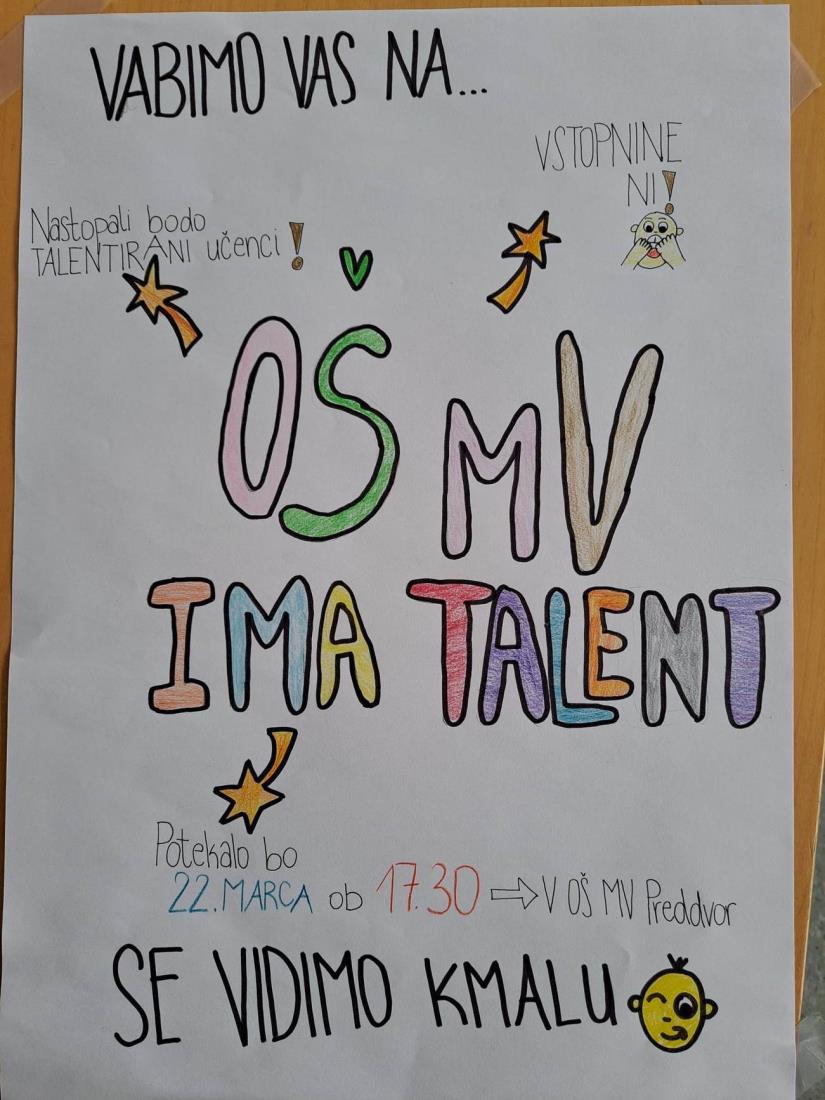 VABIMO VAS NA...
VSTOPNINE
NI!
Nastopali bodo
TALENTIRANI učenci!
OŠ MV
IMA TALENT
Potekalo bo
22. MARCA ob 17.30 ⇨ V OŠ MV Preddvor
SE VIDIMO KMALU